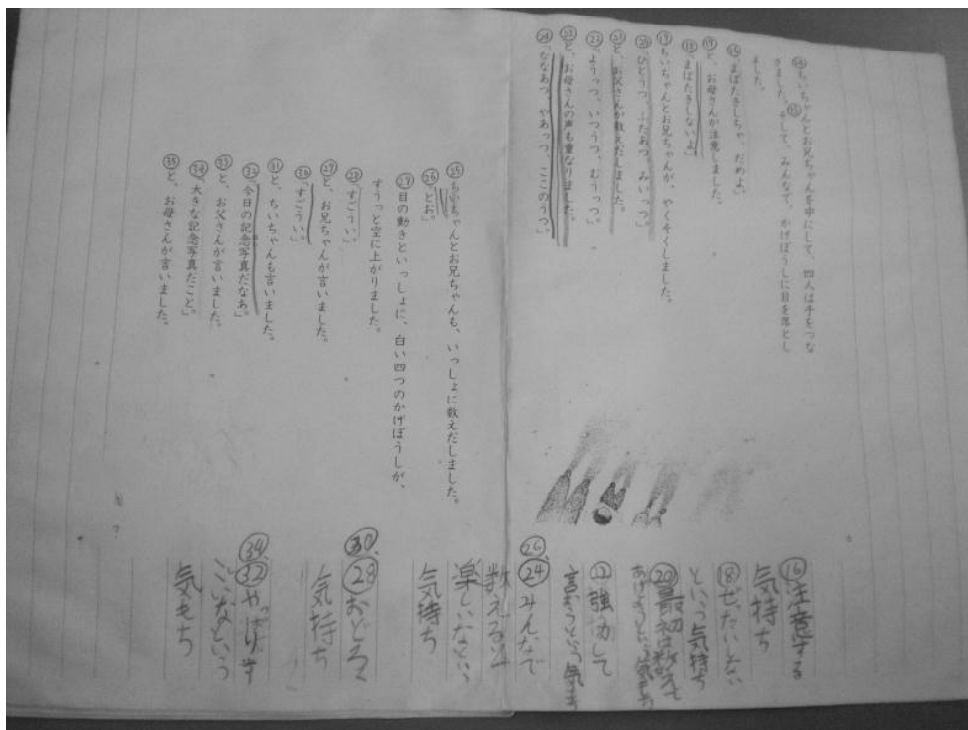 ⑭ちいちゃんとお兄ちゃんを中にして、四人は手をつな
ぎました。⑮そして、みんなで、かげぼうしに目を落とし
ました。
⑯「まばたきしちゃ、だめよ。」
⑰と、お母さんが注意しました。
⑱「まばたきしないよ。」
⑲ちいちゃんとお兄ちゃんが、やくそくしました。
⑳「ひとうつ、ふたあつ、みいっつ。」
㉑と、お父さんが数えだしました。
㉒「ようっつ、いつうつ、むうっつ。」
㉓と、お母さんの声も重なりました。
㉔「ななあつ、やあっつ、ここのうつ。」
㉕ちいちゃんとお兄ちゃんも、いっしょに数えだしました。
㉖「とお。」
㉗目の動きといっしょに、白い四つのかげぼうしが、
すうっと空に上がりました。
㉘「すごうい。」
㉙と、お兄ちゃんが言いました。
㉚「すごうい。」
㉛と、ちいちゃんも言いました。
㉜「今日の記念写真だなあ。」
㉝と、お父さんが言いました。
㉞「大きな記念写真だこと。」
㉟と、お母さんが言いました。
⑯注意する
気持ち
⑱ぜったいしない
という気持ち
⑳最初は数えて
あげようという気持ち
強
して
言おうという気持
㉖㉔みんなで
数えると
楽しいなという
気持ち
㉚㉘おどろく
気持ち
㉞㉜やっぱりす
ごいなという
気もち